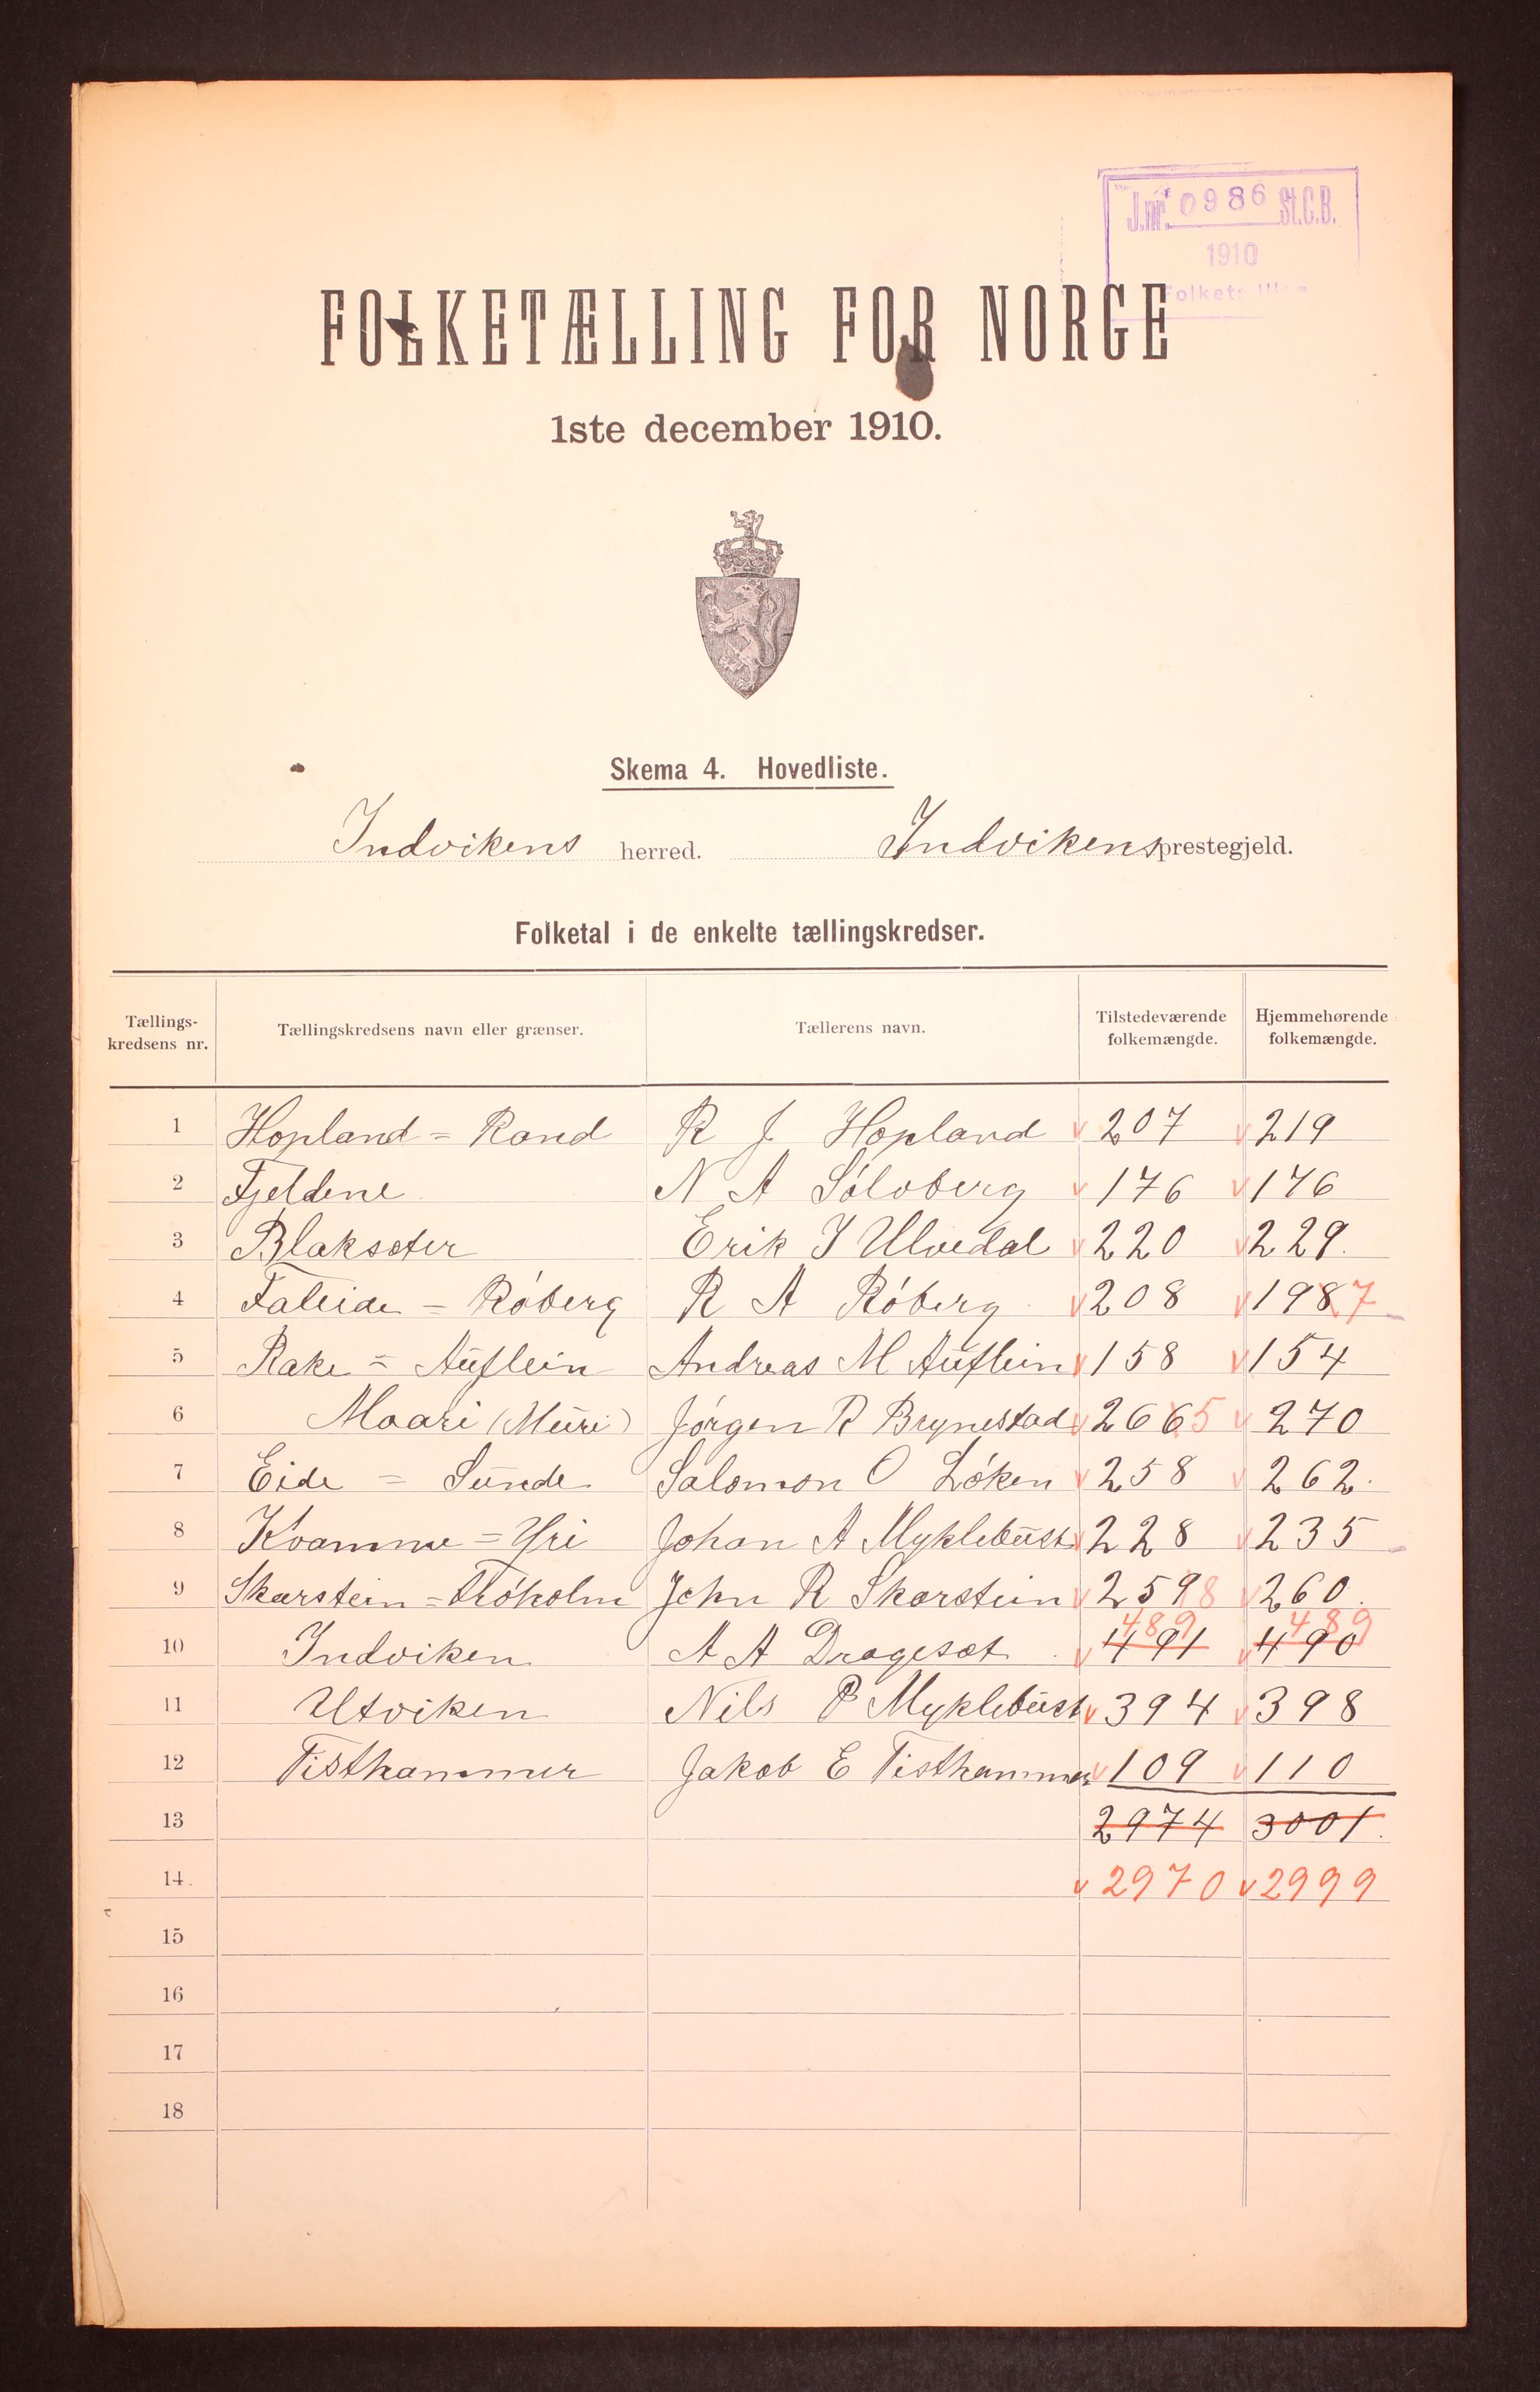 J.nr. 0986 St.C.B.
1910
FOLKETÆLLING FOR NORGE
1ste december 1910.
Skema 4. Hovedliste.
Indvikens herred. Indvikens prestegjeld.
Folketal i de enkelte tællingskredser.
Tællings-kredsens nr. Tællingskredsens navn eller grænser. Tællerens navn. Tilstedeværende folkemængde. Hjemmehørende folkemængde.
1 Hopland = Rand R J Hopland 207 219
2 Fjeldene N A Sólvberg 176 176
3 Blaksæter Erik J Ulvedal 220 229.
4 Faleide = Róberg R A Róberg 208 198 7
5 Rake = Aŭflein Andreas M Aŭflein 158 154
6 Maari (Mŭri) Jórgen R Brynestad 266 5 270
7 Eide = Sŭnde Salomon O Lóken 258 262.
8 Kvamme = Yri Johan A Myklebŭst 228 235
9 Skarstein = John R Skarstein 259 8 260.
489 489
10 Indviken A A Drageset 491 490
11 Utviken Nils P Myklebŭst 394 398
12 Tisthammer Jakob E Tisthammer 109 110
13 2974 3001.
14. 2970 2999
15
16
17
18